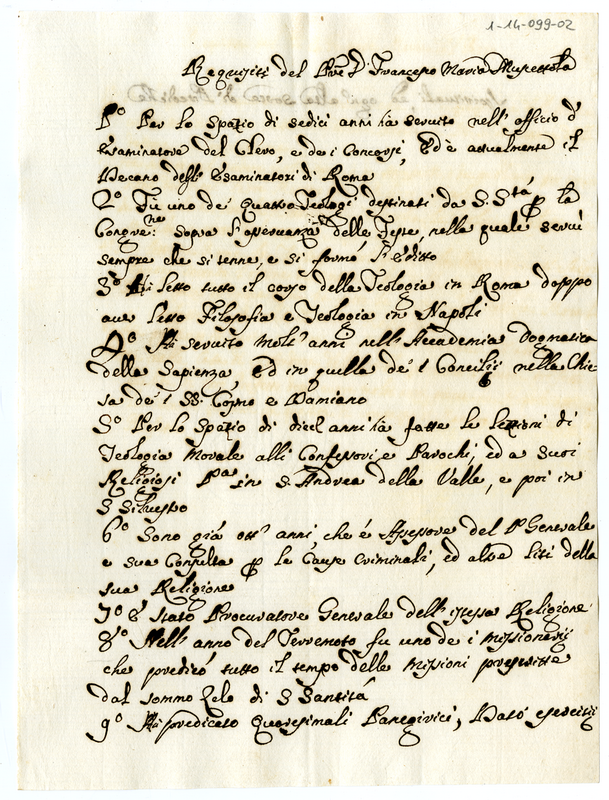 1-14-099-02
Requisiti del Pre D. Francesco Maria Muscettola
P.º Per lo spatio di sedici anni hà servito nell'officio d'
Esaminatore del Clero, e de i Concorsi, Ed è attualmente il
Decano degl'Esaminatori di Roma
2º Fù uno de' quattro Teologi destinati da S. S.tà per la
Congne: sopra l'osservanza delle Feste, nella quale servì
sempre che si tenne, e si formò l'Editto
3º Hà letto tutto il corso della Teologia in Roma doppo
aver letto Filosofia e Teologia in Napoli
4º Hà servito molt'anni nell'Accademia Dogmatica
della Sapienza Ed in quella de i Concilii nella Chie
sa de i SS. Cosmo e Damiano
5º Per lo spatio di dieci anni hà fatte le lezzioni di
Teologia Morale alli Confessori, e Parochi, ed a suoi
Religiosi P.a in S. Andrea della Valle, e poi in
S Silvestro
6º Sono già ott'anni, che é Assessore del P. Generale
e sua Consulta per le Cause Criminali, ed altre liti della
sua Religione
7º É stato Procuratore Generale dell'istessa Religione
8º Nell'anno del Terremoto fu uno de i missionarij
che predicó tutto il tempo delle missioni prescritte
dal sommo Zelo di S Santitá
9º Hà predicato Quaresimali Panegirici, Dato esercitij